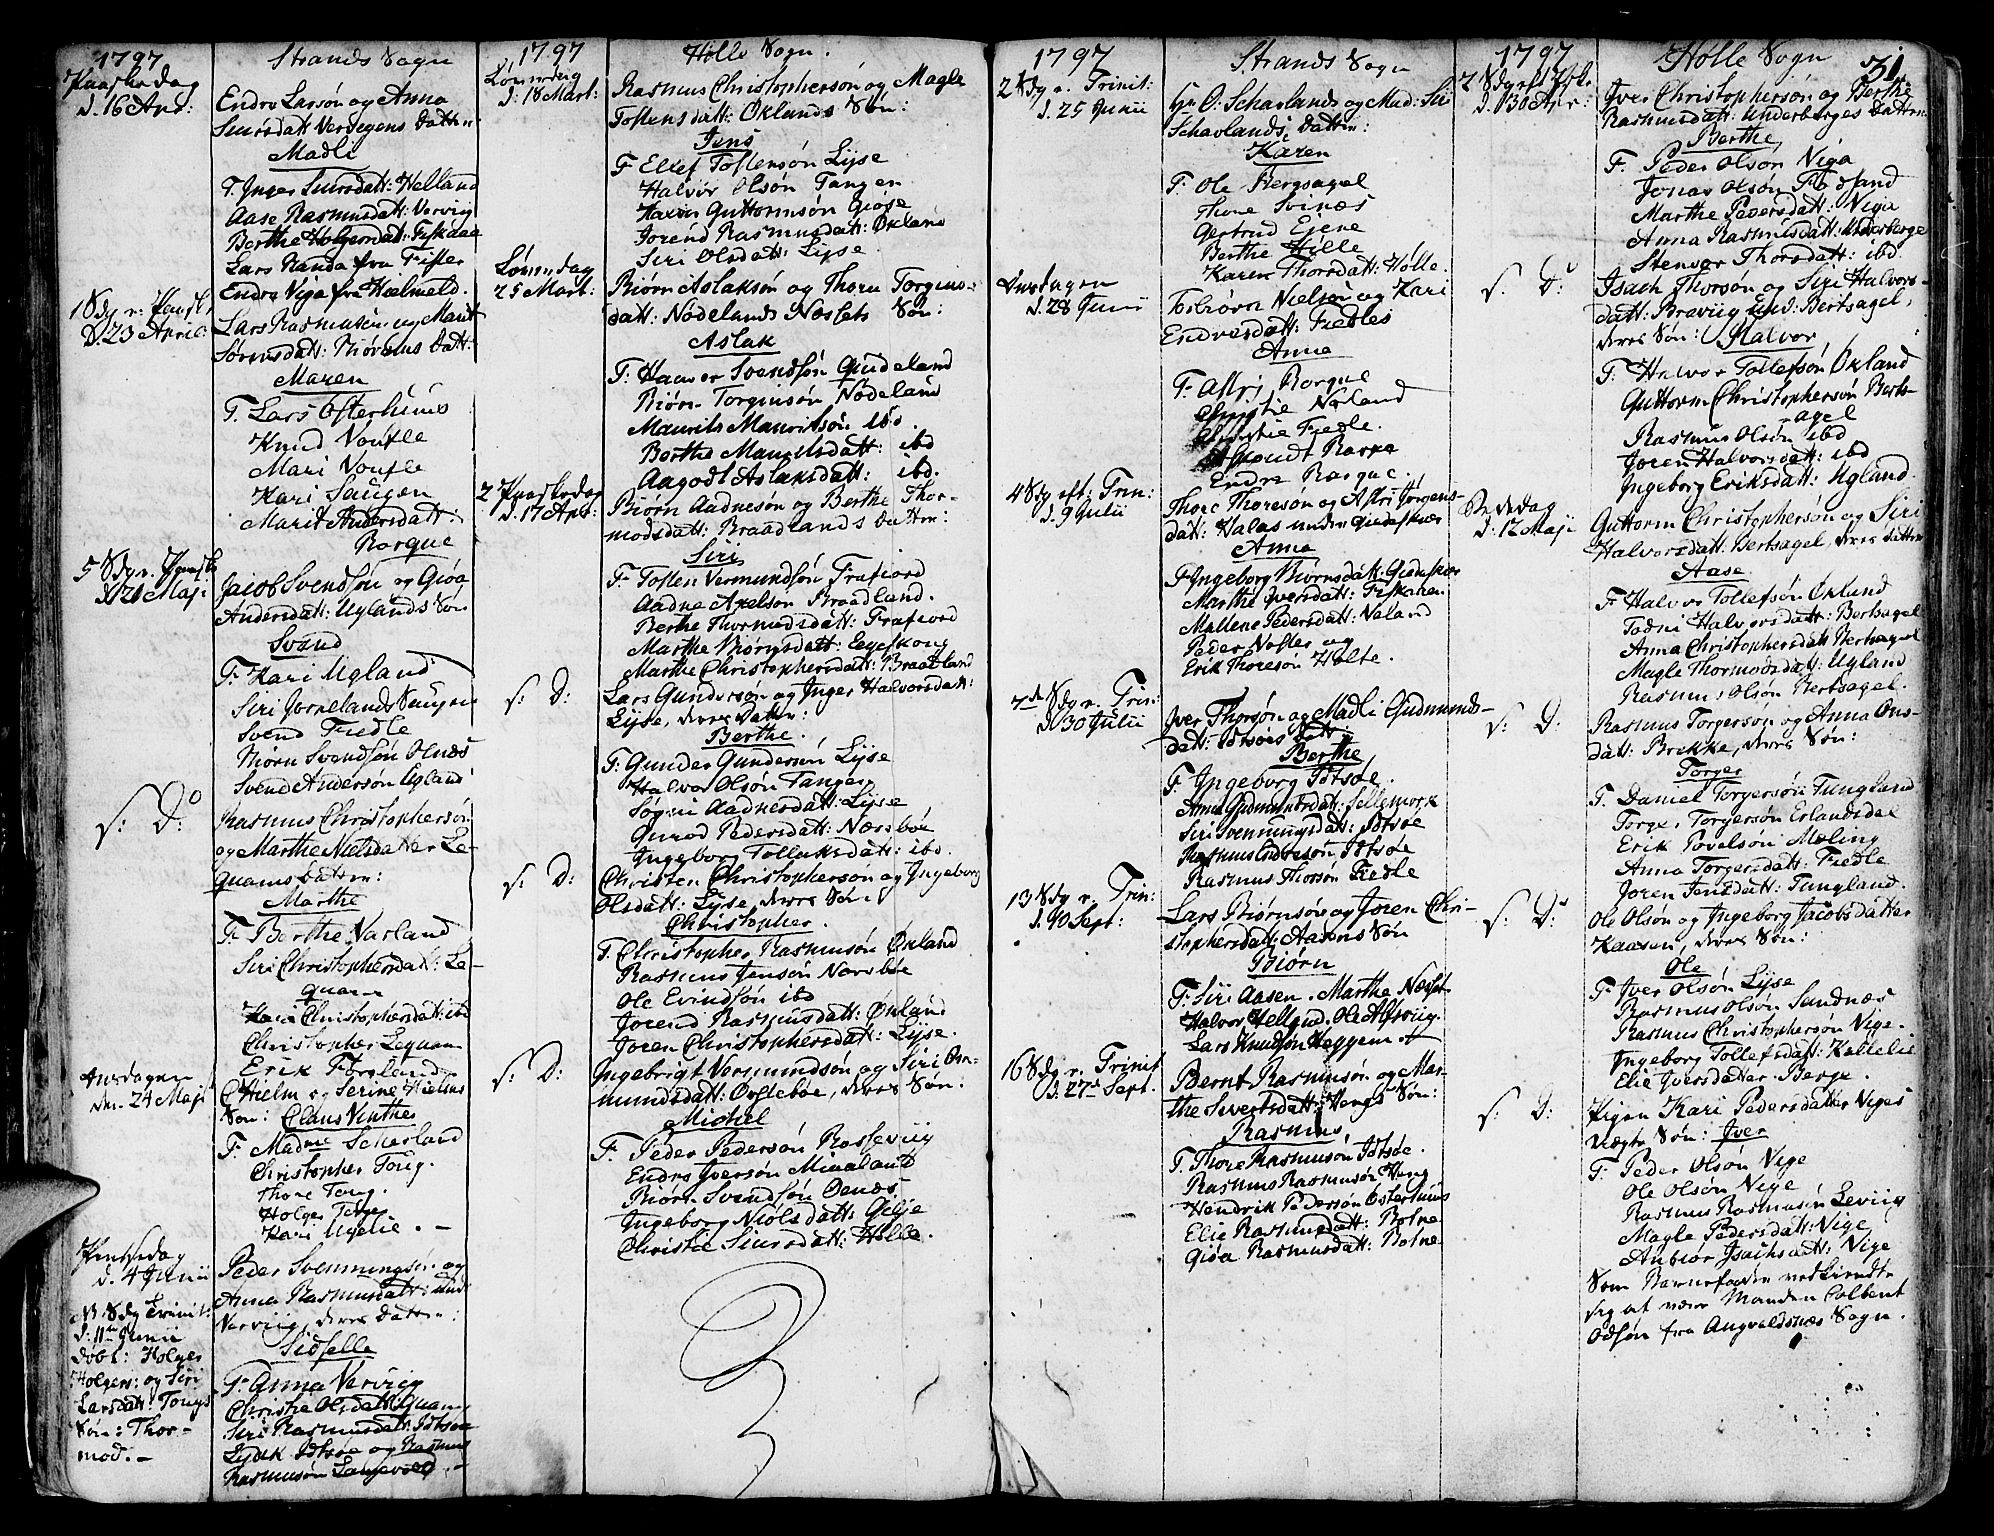 1797
Strands Sogn
Paaskedag
d. 16 Apr:
Endre Larsøn og Anna
Siursdatt: Vervigens Datter:
Madli
F. Inger Siursdatt: Helland
Aase Rasmusdatt: Vervig
Berthe Holgersdatt: Fiskaae
Lars Randa fra Fister
Endre Viga fra Hielmeld.
1 Sdg p. Paask:
d. 23 April
Lars Rasmusøn og Marit
Sørensdatt: Biørøens Datt:
Maren
F. Lars Østerhuus
Knud Voufle
Mari Voufle
Kari Saugen
Marit Andersdatt:
Barque
5 Sdg p. Paask
d. 21 Maji
Jacob Svendsøn og Giøa
Andersdatt: Uglands Søn
Svend
F. Kari Ugland
Siri Jørnelands Saugen
Svend Fiedle
Biørn Svendsøn Olnæs
Svend Andersøn Ugland
S: D:
Rasmus Christophersøn
og Marthe Nielsdatter Le-
quams Datter:
Marthe
F. Berthe Varland
Siri Christophersdatt: Le-
quam
Kari Christophersdatt: ibd
Christopher Lequam
Erik Forgland
Onsdagen
den 24 Maji
C Hielm og Serine Hielms
Søn: Claus Venthes
F. Madme Schesland
Christopher Toug.
Thore Toug.
Holger Toug
Kari Ugelie. –
Pintsedag
d. 4 Junii
Peder Svenningsøn og
Anna Rasmusdatt: und:
Vervig, deres Datter:
Sidselle
F. Anna Vervig
Christie Olsdatt: Quam
Siri Rasmusdatt: Idtsøe
Lydek Idtsøe og Rasmus
Rasmusøn Langevold. –
NB. Sdg Trinit:
d: 11te Junii
døbt: Holger
Holgers: og Siri
Larsdatt: Tougs
Søn: Thor-
mod. –
1797
Hølle Sogn.
Løverdag
d: 18 Mart:
Rasmus Christophersøn og Magle
Tostensdatt: Øklands Søn:
Jens
F. Ellef Tostensøn Lyse
Halvor Olsøn Tangen
Haver Guttormsøn Giøse
Jorend Rasmusdatt: Økland
Siri Olsdatt: Lyse
Løverdag
25 Mart:
Biørn Aslaksøn og Thoru Torgius-
datt: Nødelands Næssets Søn:
Aslak
F. Haaver Svendsøn Qudeland
Biørn Torginsøn Nødeland
Maurits Mauritsøn ibd.
Berthe Mauritsdatt: ibd
Aagodt Aslaksdatt: ibd.
2 Paaskedag
d. 17 Apr:
Biørn Aadnesøn og Berthe Thor-
modsdatt: Braadlands Datter:
Siri
F. Tosten Vermundsøn Frafiord
Aadne Axelsøn Braadland.
Berthe Thormodsdatt: Frafiord
Marthe Biørnsdatt: Eegeskoug
Marthe Christophersdatt: Braadland
S: D:
Lars Gundersøn og Inger Halvorsdatt:
Lyse, deres Datter:
Berthe.
F. Gunder Gundersøn Lyse
Halvor Olsøn Tangen
Søgni Aadnesdatt: Lyse
Guroe Pedersdatt: Næssbøe
Ingeborg Tollaksdatt: ibd.
S: D:
Christen Christophersøn og Ingeborg
Olsdatt: Lyse, deres Søn:
Christopher
F. Christopher Rasmusøn Økland
Rasmus Jensøn Næssbøe
Ole Evindsøn ibd
Jorend Rasmusdatt: Økland
Joren Christophersdatt: Lyse.
S: D:
Ingebrigt Vermundsøn og Siri On-
mundsdatt: Ørstebøe, deres Søn:
Michel
F. Peder Pedersøn Rosseviig
Endre Iversøn Mioeland
Biørn Svendsøn Øenæs
Ingeborg Niølsdatt: Gilje
Christie Siursdatt: Hølle.
1797
Strands Sogn
2 Sdg p. Trinit:
d. 25 Junii
Hr O. Schavlands og Mad: Siri
Schavlands Datter:
Karen
F. Ole Bergsagel
Thore Svinæs
Gertrud Eiene
Berthe Hølle
Karen Thorsdatt: Hølle.
Onsdagen
d. 28 Junii
Torbiørn Nielsøn og Kari
Endresdatt: Fiedles
Anna
F. Astri Barque
Christie Noland
Christie Fiedle.
Asmundt Barke
Endre Barque.
4 Sdg eft: Trin:
d. 9 Julii
Thore Thoresøn og Astri Jørgens-
datt: Halas under Giedeskær
Anna
F. Ingeborg Biørnsdatt: Giedeskær
Marthe Iversdatt: Fiskaaen.
Mallene Pedersdatt: Noland
Peder Nofter og
Erik Thoresøn Holte.
7de Sdg p. Trin:
d. 30 Julii
Iver Thorsøn og Madli Gudmunds-
datt: Idtsøes Datt:
Berthe
F. Ingeborg Idtsøe.
Anna Gudmundsdatt: Tellemork
Siri Svenningsdatt: Idtsøe
Rasmus Endresøn Idtsøe
Rasmus Thorsøn Fiedle
13 Sdg p. Trin:
d. 10 Sept:
Lars Biørnsøn og Joren Chri-
stophersdatt: Aasens Søn
Biørn
F. Siri Aasen. Marthe Næsset
Halvor Hellgud. Ole Alsviig.
Lars Knudsøn Heggem.
16 Sdg p. Trinit
d. 27de Sept.
Bernt Rasmusøn og Mar-
the Sivertsdatt: Hengs Søn:
Rasmus
F. Thore Rasmusøn Idtsøe.
Rasmus Rasmusøn Heng
Hendrik Pedersøn Østerhuus
Elie Rasmusdatt: Botne
Giøa Rasmusdatt: Botne
1797
Hølle Sogn
31
2 Sdg eft. Paask.
d. 30 Apr:
Iver Christophersøn og Berthe
Rasmusdatt: Underberges Datter
Berthe
F. Peder Olsøn Niga
Jonas Olsøn Fosssand
Marthe Pedersdatt: Niga
Anna Rasmusdatt: Underberge
Stenvor Thorsdatt: ibd.
S: D:
Isach Thorsøn og Siri Halvors-
datt: Braviig und: Bertsagel,
deres Søn: Halvor
F. Halvor Tollefsøn Økland
Guttorm Christophersøn Berts-
agel
Rasmus Olsøn ibd
Joren Halvorsdatt: ibd
Ingeborg Eriksdatt: Ugland.
Bededag
d: 12 Maji
Guttorm Christophersøn og Siri
Halvorsdatt: Bertsagel, deres Datter
Aase.
F. Halvor Tollefsøn Økland
Todni Halvorsdatt: Bertsagel
Anna Christophersdatt: Bertsagel
Magle Thormodsdatt: Ugland
Rasmus Olsøn Bertsagel.
S: D:
Rasmus Torgersøn og Anna Ons-
datt: Brekke, deres Søn:
Torger
F. Daniel Torgersøn Fungland
Torger Torgersøn Erlandsdal
Erik Povelsøn Mæling
Anna Torgersdatt: Fiedle
Joren Jensdatt: Tungland.
S: D:
Ole Olsøn og Ingeborg Jacobsdatter
Kaasen, deres Søn:
Ole
F. Iver Olsøn Lyse
Rasmus Olsøn Sandnæs
Rasmus Christophersøn Nige.
Ingeborg Tollefsdatt: Kallelie
Elie Iversdatter Berge.
S: D:
Pigen Kari Pedersdatter Niges
uægte Søn: Iver
F. Peder Olsøn Nige
Ole Olsøn Nige
Rasmus Rasmusøn Leviig
Magle Pedersdatt: Nige
Anbiør Isachsdatt: Nige
Som Barnefader vedkiendte
sig at være Manden Colbent
Odsøn fra Augvaldsnæs Sogn.